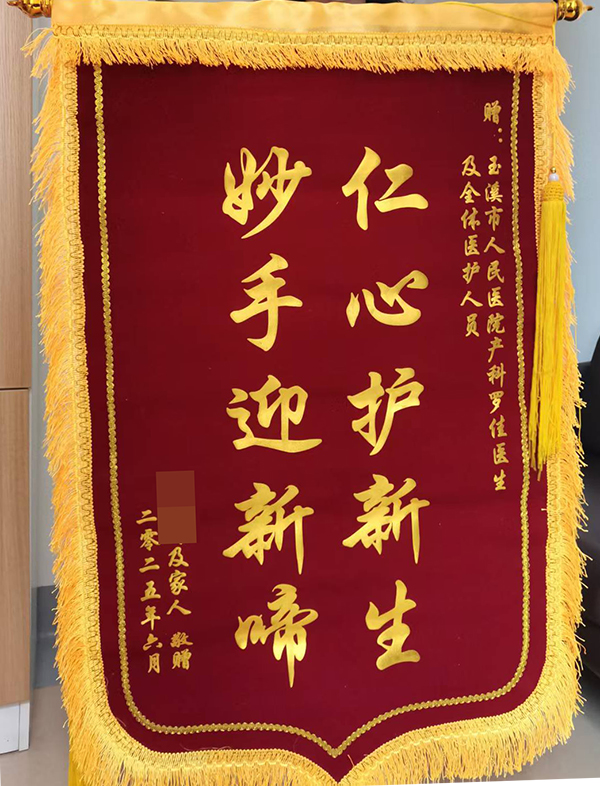 赠：玉溪市人民医院产科罗佳医生
及全体医护人员
仁心护新生
妙手迎新啼
及家人 敬赠
二零二五年六月